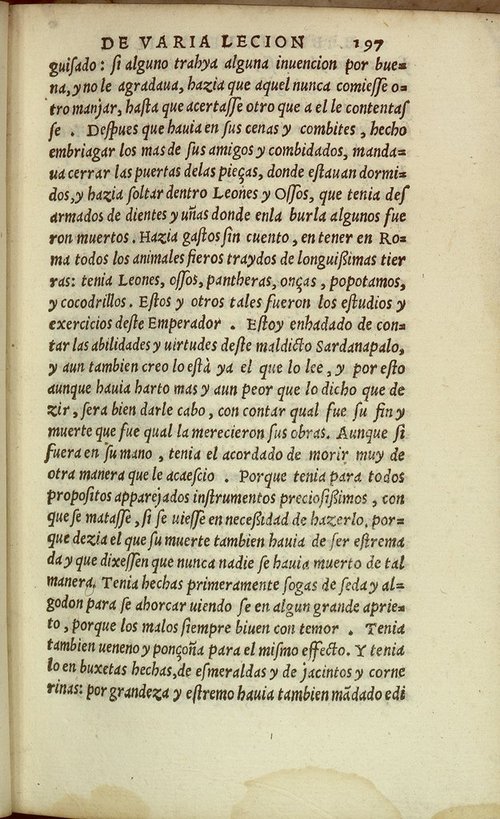 DE VARIA LECION 197
guisado : si alguno trahya alguna inuencion por bue=
na, y no le agradaua, hazia que aquel nunca comiesse o=
tro manjar, hasta que acertasse otro que a el le contentas
se . Despues que hauia en sus cenas y combites , hecho
embriagar los mas de sus amigos y combidados, manda=
ua cerrar las puertas delas pieças, donde estauan dormi=
dos, y hazia soltar dentro Leones y Ossos, que tenia des
armados de dientes y uñas donde enla burla algunos fue
ron muertos . Hazia gastos sin cuento , en tener en Ro=
ma todos los animales fieros traydos de longuißimas tier
ras: tenia Leones, ossos, pantheras, onças , popotamos,
y cocodrillos . Estos y otros tales fueron los estudios y
exercicios deste Emperador . Estoy enhadado de con=
tar las abilidades y uirtudes deste maldicto Sardanapalo,
y aun tambien creo lo està ya el que lo lee , y por esto
aunque hauia harto mas y aun peor que lo dicho que de
zir , sera bien darle cabo , con contar qual fue su fin y
muerte que fue qual la merecieron sus obras. Aunque si
fuera en su mano , tenia el acordado de morir muy de
otra manera que le acaescio . Porque tenia para todos
propositos apparejados instrumentos preciosißimos , con
que se matasse , si se uiesse en neceßidad de hazerlo, por=
que dezia el que su muerte tambien hauia de ser estrema
da y que dixessen que nunca nadie se hauia muerto de tal
manera. Tenia hechas primeramente sogas de seda y al=
godon para se ahorcar uiendo se en algun grande aprie=
to , porque los malos siempre biuen con temor . Tenia
tambien ueneno y ponçoña para el mismo effecto. Y tenia
lo en buxetas hechas, de esmeraldas y de jacintos y corne
rinas: por grandeza y estremo hauia tambien mãdado edi